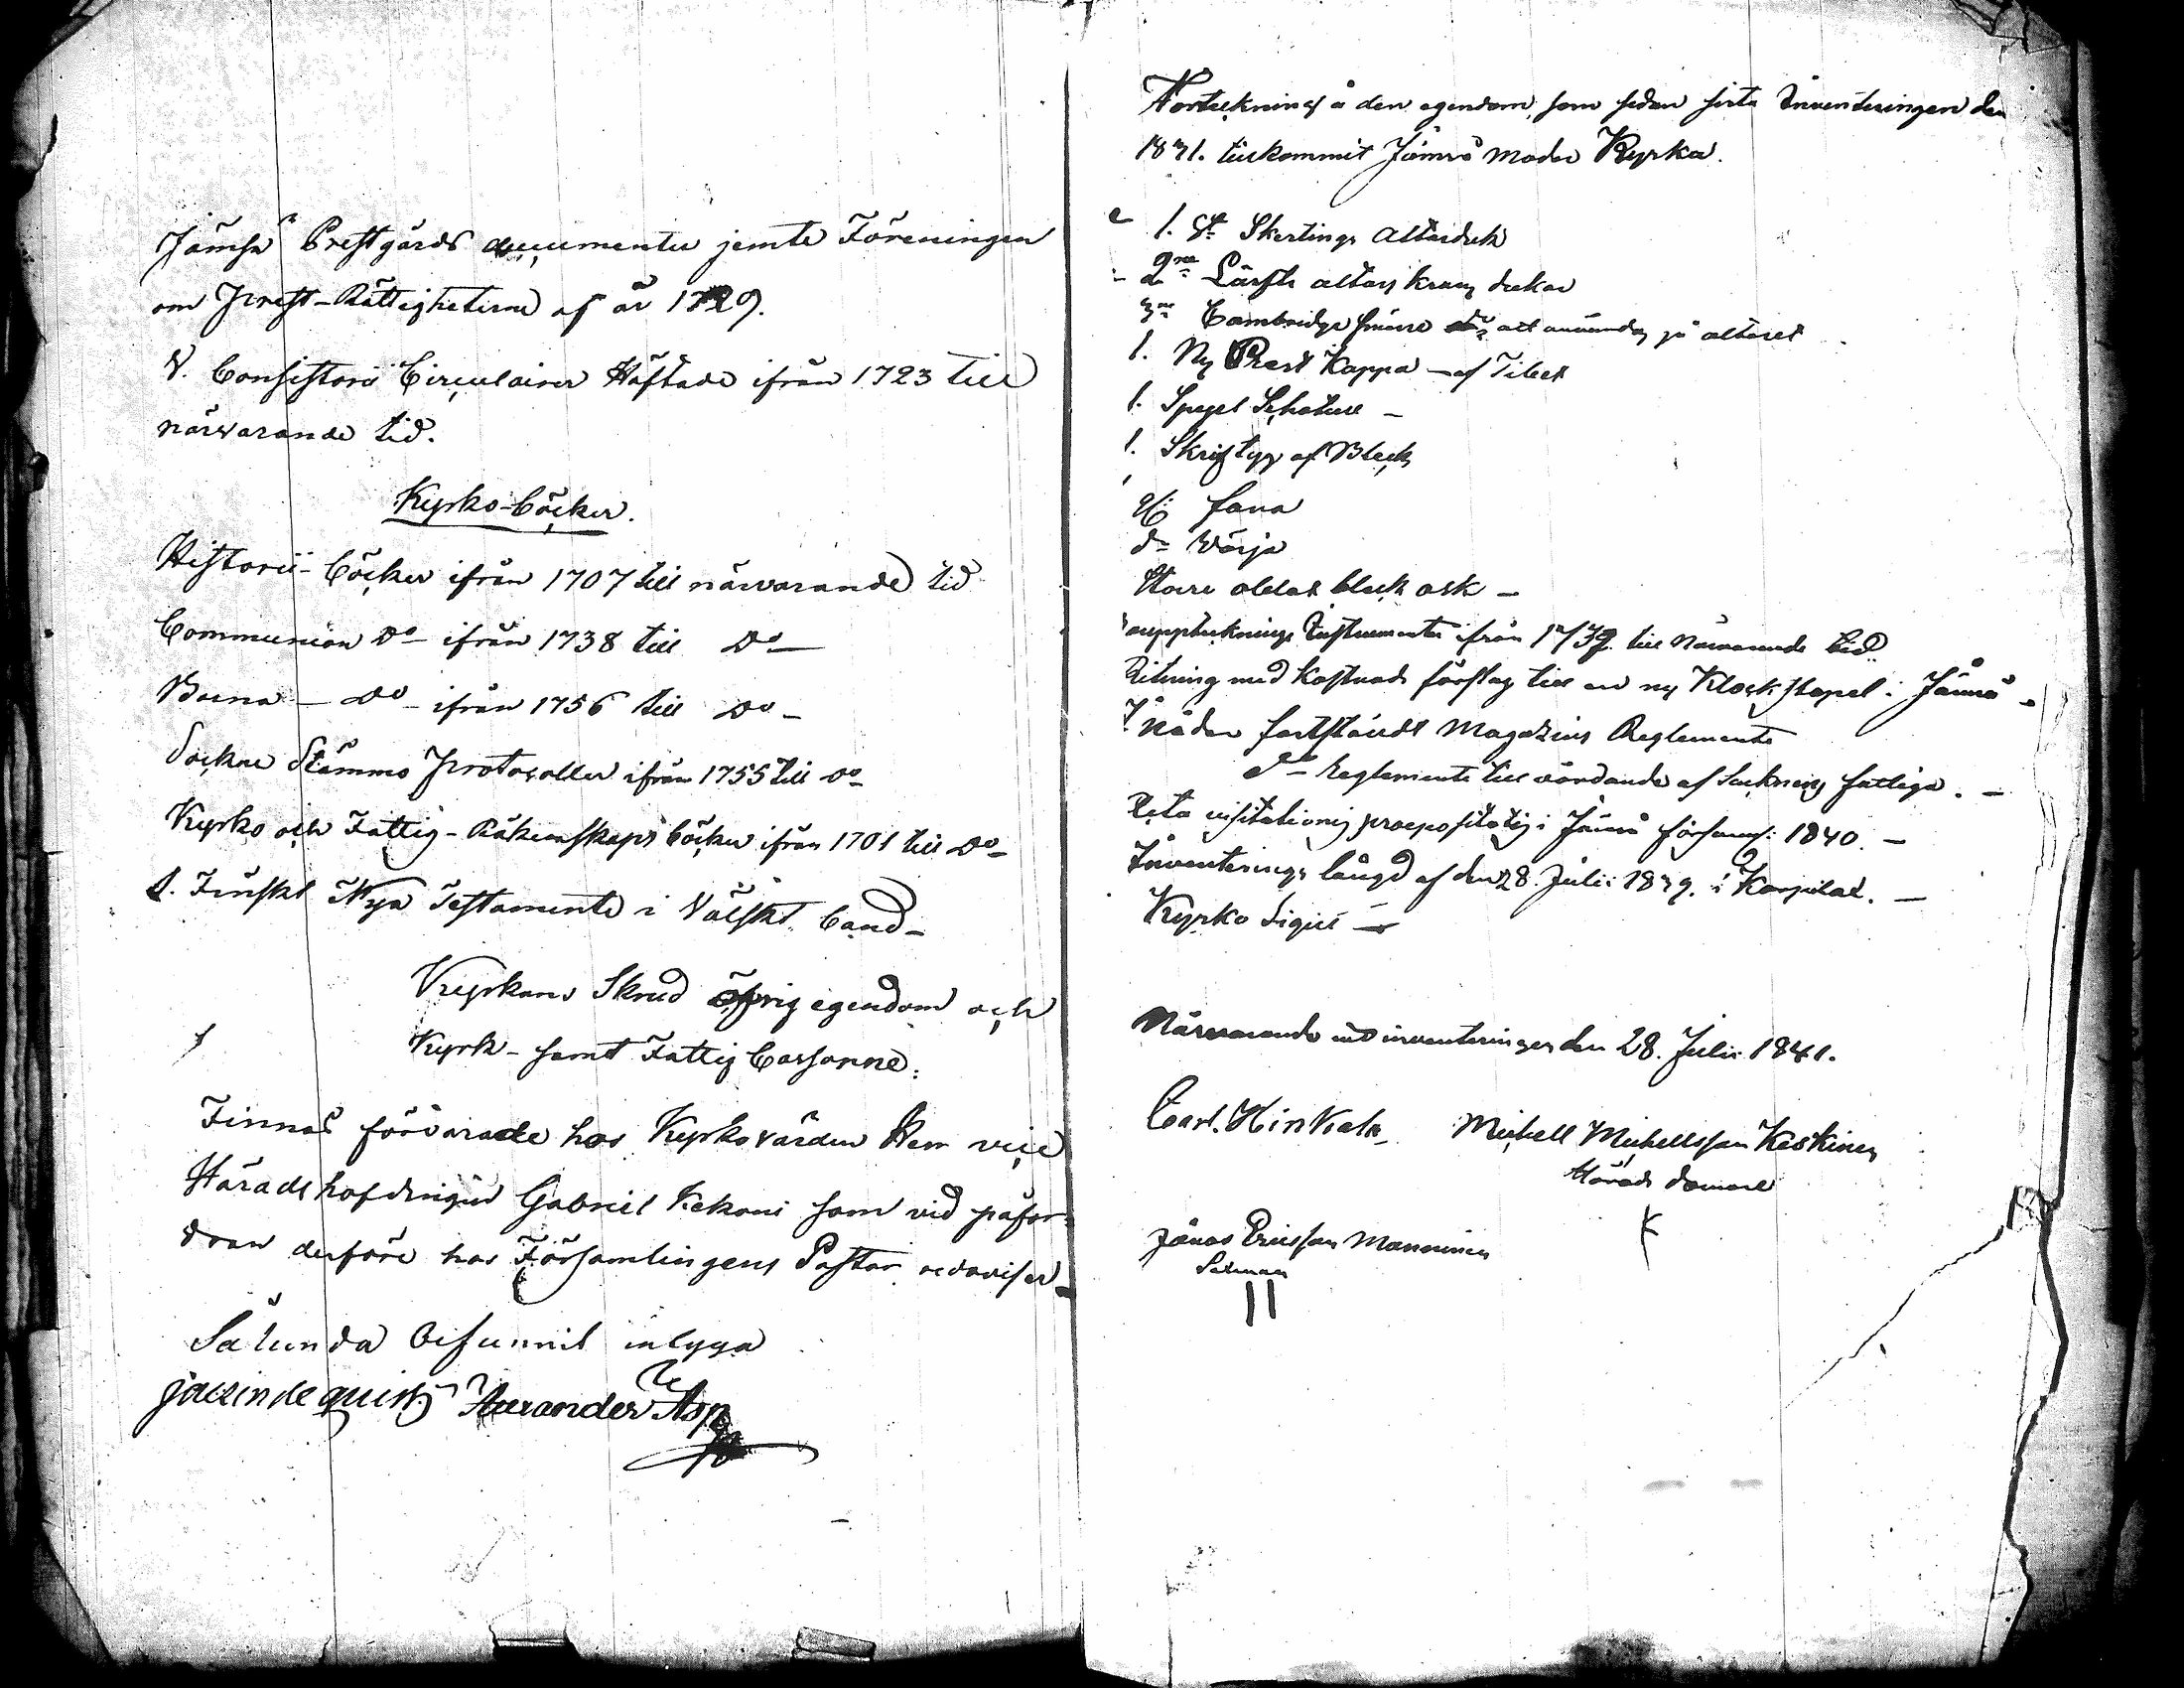 Jämsä Prestgårds documenter jemte Föreningen
om Prest-Rättigheterne af år 1729.
V. Consistorii Circulairer Häftade ifrån 1723 till
närvarande tid.
Kyrko-böcker.
Historie-böcker ifrån 1707 till närvarande tid
Communion Do- ifrån 1738 till Do-
Barna- Do- ifrån 1756 till Do-
Sockne Stämmo Protocoller ifrån 1755 till Do-
Kyrko och Fattig-Räkenskaps böcker ifrån 1701 till Do-
1. Finskt Nya Testamente i Välskt band-
Kyrkans Skrud öfrig egendom och
Kyrk- samt Fattig Cassorne:
Finnas förvarade hos Kyrkovärden Herr vice
Häradshöfdingen Gabriel Kekoni som vid påfor-
dran derföre hos Församlingens Pastor redoviser-
Sålunda befunnit intyga
Alexander Asp
Förteckning å den egendom, som sedan sista Inventeringen den
1831. tillkommit Jämsä Moder Kyrka.
1. St Skertings Altarduk
2ne Lärfts altar krans dukar
3ne Cambridge smärre do att användas på altaret
1. Ny Prest Kappa - af Tibet
1. Spegel Schatull -
1. Skriftyg af Bleck
fana
do Värja
Större oblat bleck ask -
ifrån 1739 till Närvarande tid
Ritning med Kostnads förslag till en ny Klockstapel i Jämsä -
Nåder fastställdt Magazins Reglemente
do- Reglemente till vårdande af Socknens fattiga. -
Acta visitationis praepositalis i Jämsä församl: 1840. -
Inventerings längd af den 28. Julii 1839. i Korpilax. -
Kyrko Sigill -
Närvarande vid inventeringen den 28. Julii 1841.
Carl. Hinkala Michell Michellsson Keskinen
Härads domare
Jonas Ericsson Manninen